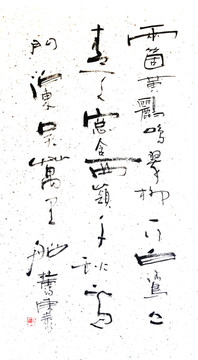 兩箇黃鸝鳴翠柳一行白鷺上
青天窓含西嶺千秋雪
門泊東吳萬里船